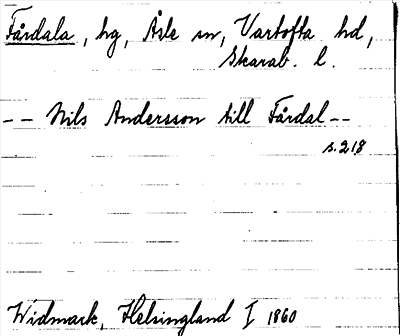 Fårdala, hg, Åsle sn, Vartofta hd,
Skarab. l.
-- Nils Andersson till Fårdal --
s. 218
Widmark, Helsingland I 1860